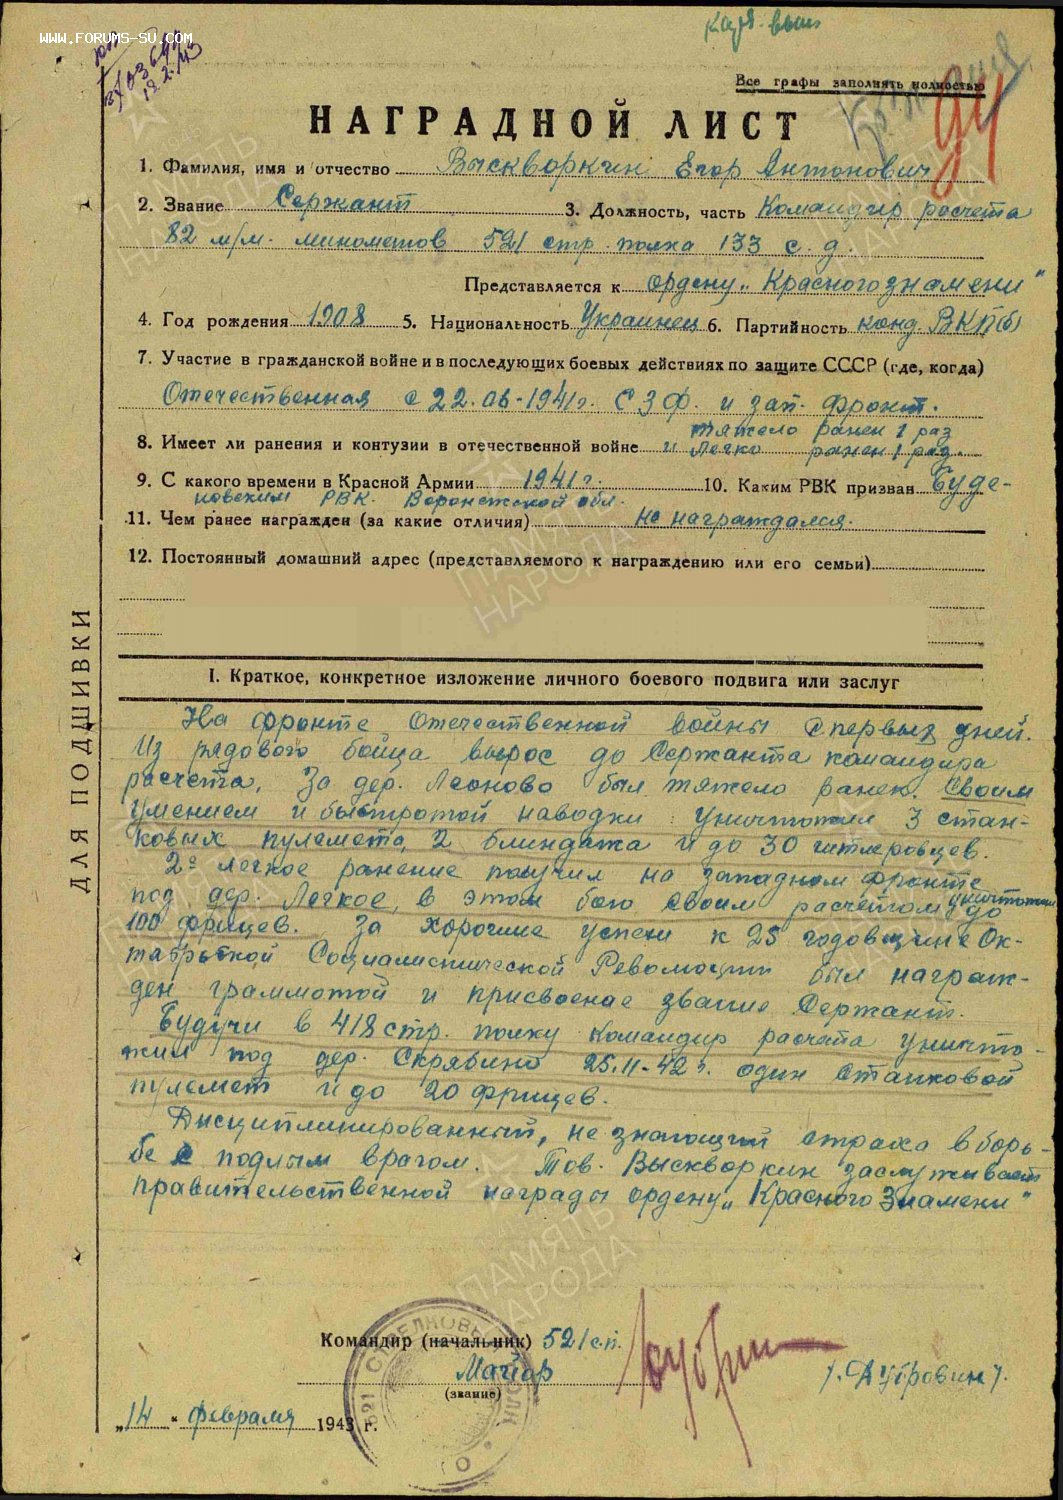 WWW.FORUMS-SU.COM
Все графы заполнять полностью
НАГРАДНОЙ ЛИСТ
1. Фамилия, имя и отчество Выскворкин Егор Антонович
2. Звание Сержант 3. Должность, часть Командир расчета
82 м/м. минометов 521 стр. полка 133 с. д.
Представляется к ордену „Красного знамени"
4. Год рождения 1908 5. Национальность Украинец 6. Партийность канд. ВКП(б)
7. Участие в гражданской войне и в последующих боевых действиях по защите СССР (где, когда)
Отечественная с 22.06-1941г. С З Ф. и зап. фронт.
тяжело ранен 1 раз
8. Имеет ли ранения и контузии в отечественной войне и Легко ранен 1 раз.
9. С какого времени в Красной Армии 1941 г. 10. Каким РВК призван Буде-
новским РВК. Воронежской обл.
11. Чем ранее награжден (за какие отличия) не награждался.
12. Постоянный домашний адрес (представляемого к награждению или его семьи)
ДЛЯ ПОДШИВКИ
I. Краткое, конкретное изложение личного боевого подвига или заслуг
На фронте Отечественной войны с первых дней.
Из рядового бойца вырос до Сержанта командира
расчета. За дер. Леоново был тяжело ранен. Своим
умением и быстротой наводки уничтожил 3 стан-
ковых пулемета, 2 блиндажа и до 30 гитлеровцев.
2е легкое ранение получил на западном фронте
под дер. Легкое, в этом бою своим расчетом уничтожил до
100 фрицев. За хорошие успехи к 25 годовщине Ок-
тябрьской Социалистической Революции был награж-
ден граммотой и присвоенае звание Сержант.
Будучи в 418 стр. полку командир расчета уничто-
жил под дер. Скрябино 25.11-42 г. один станковой
пулемет и до 20 фрицев.
Дисциплинированный, не знающий страха в борь-
бе с подлым врагом. Тов. Выскворкин заслуживает
правительственной награды ордену „Красного Знамени"
Командир (начальник) 521 с.п.
Майор
(звание)
/.Дубровин/.
„14" февраля 1943 г.
521 СТРЕЛКОВЫЙ ПОЛК
ПАМЯТЬ
НАРОДА